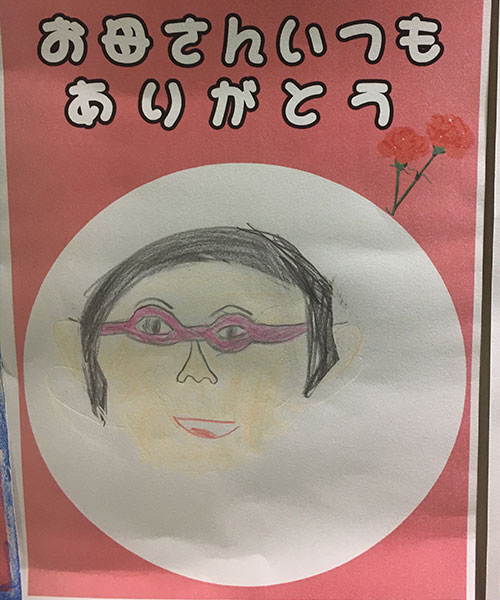 お母さんいつも
ありがとう